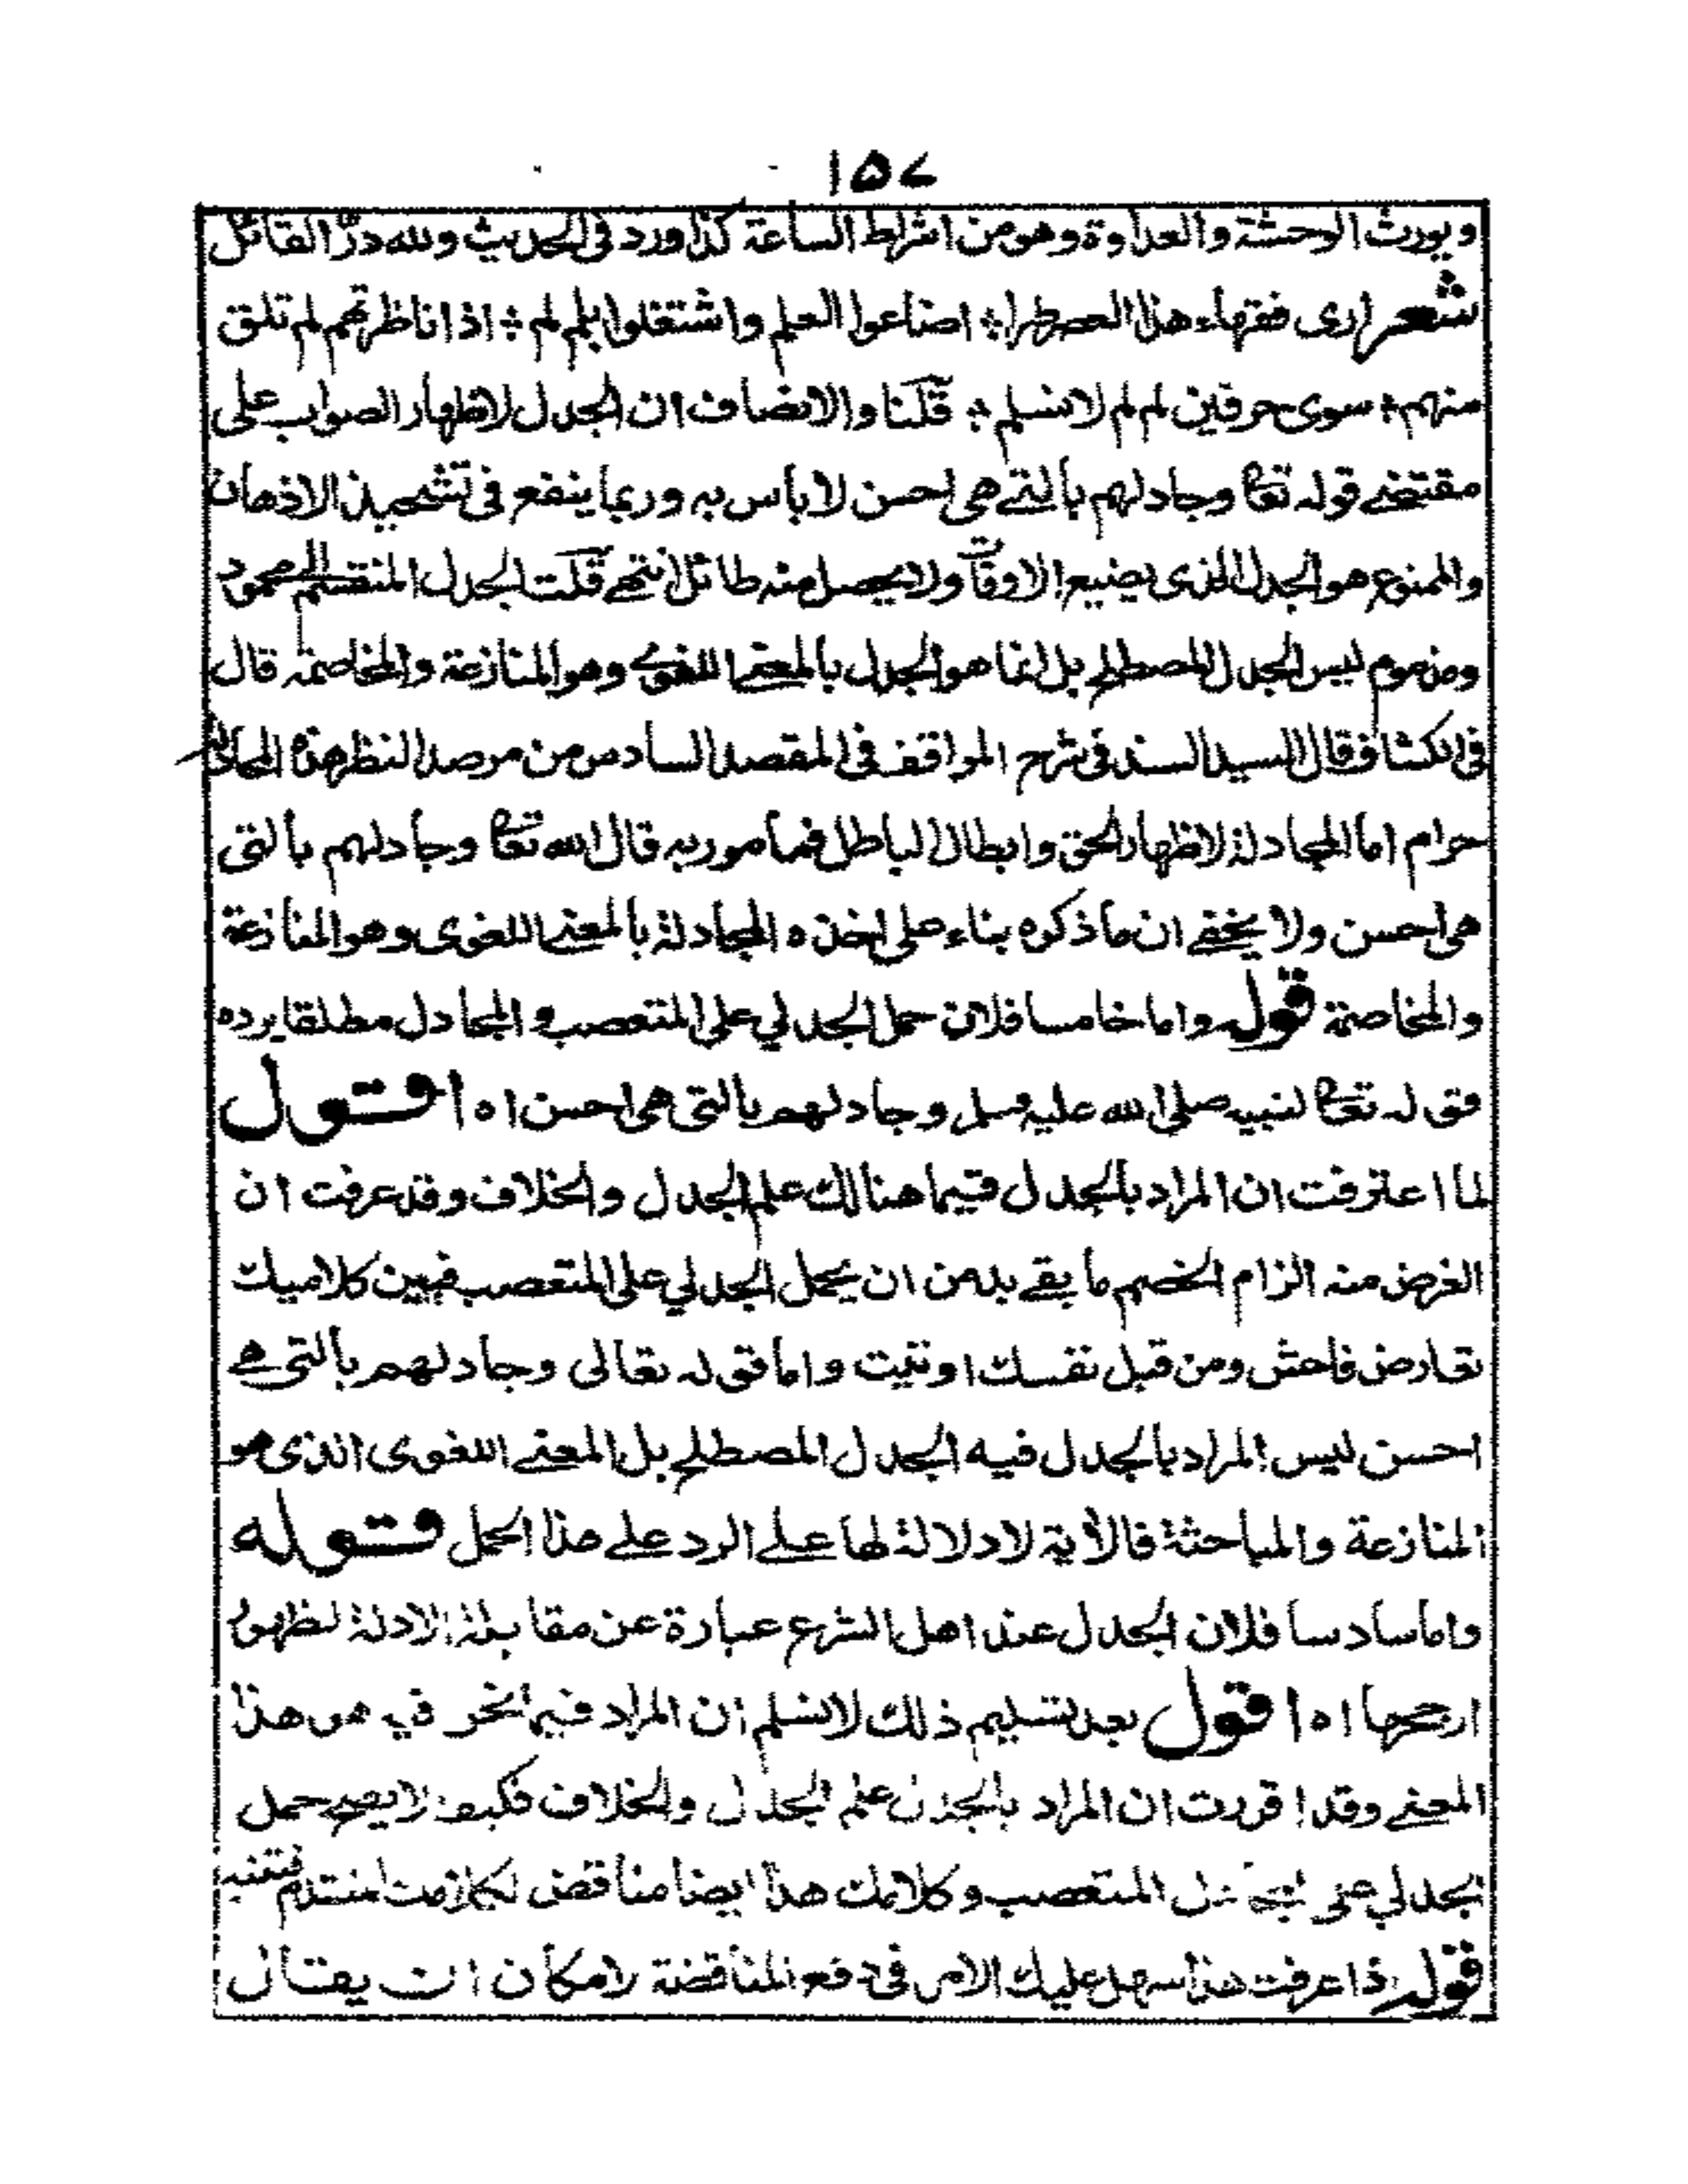 ۱۵۷
ويورث الوحشة والعداوة وهو من اشراط الساعة كذا ورد في الحديث ولله درّ القائل
شعر ارى فقهاء هذا العصر طرا ؛ اضاعوا العلم واشتغلوا بلم لم ؛ اذا ناظرتهم لم تلق
منهم ؛ سوى حرفين لم لم لا نسلم ؛ قلنا والانصاف ان الجدل لاظهار الصواب على
مقتضى قوله تعا وجادلهم بالتي هي احسن لا باس به وربما ينفع في تشحيذ الاذهان
والممنوع هو الجدل الذى يضيع الاوقات ولا يحصل منه طائل انتهى قلت الجدل المنقسم الى محمود
ومذموم ليس الجدل المصطلح بل انما هو الجدل بالمعنى اللغوي وهو المنازعة والمخاصمة قال
في الكشاف قال السيد السند في شرح المواقف في المقصد السادس من مرصد النظر هذه المجادلة
حرام اما المجادلة لاظهار الحق وابطال الباطل فمامور به قال الله تعا وجادلهم بالتى
هي احسن ولا يخفى ان ما ذكره بناء على اخذه المجادلة بالمعنى اللغوى وهو المنازعة
والمخاصمة قوله واما خامسا فلان حمل الجدلي على المتعصب والمجادل مطلقا يرده
قوله تعا لنبيه صلى الله عليه وسلم وجادلهم بالتى هى احسن اه اقول
لما اعترفت ان المراد بالجدل فيما هنالك علم الجدل والخلاف وقد عرفت ان
الغرض منه الزام الخصم ما بقي بد من ان يحمل الجدلي على المتعصب فبين كلاميك
تعارض فاحش ومن قبل نفسك اوتيت واما قوله تعالى وجادلهم بالتى هي
احسن ليس المراد بالجدل فيه الجدل المصطلح بل المعنى اللغوى الذى هو
المنازعة والمباحثة فالأية لا دلالة لها على الرد على هذا الحمل قوله
واما سادسا فلان الجدل عند اهل الشرع عبارة عن مقابلة الادلة لظهور
ارجحها اه اقول بعد تسليم ذلك لا نسلم ان المراد فيما نحن فيه هو هذا
المعنى وقد اقررت ان المراد بالجدل علم الجدل والخلاف فكيف لا يصح حمل
الجدلي على المجادل المتعصب وكلامك هذا ايضا مناقض لكلامك المتقدم فتنبه
قوله اذا عرفت هذا سهل عليك الامر في دفع المناقضة لامكان ان يقال